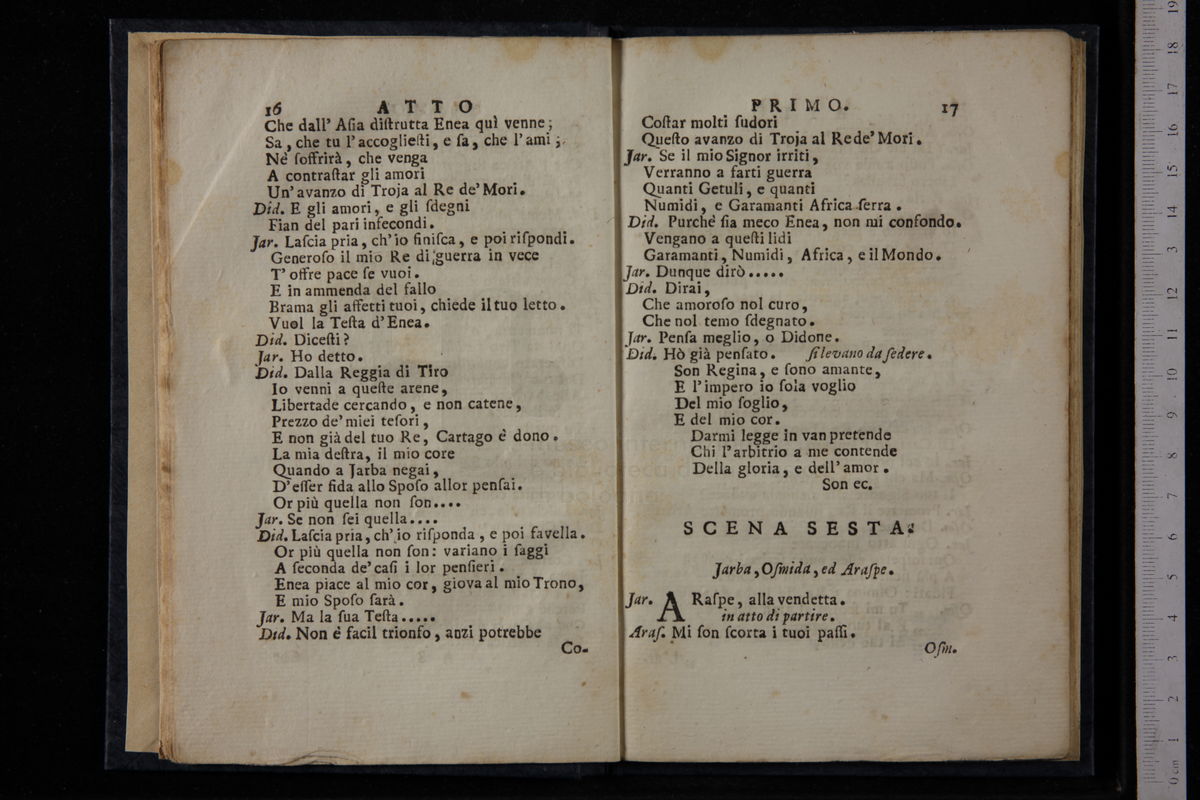 16 ATTO
Che dall' Aſia diſtrutta Enea quì venne;
Sa, che tu l'accoglieſti, e ſa, che l'ami;
Nè ſoffrirà, che venga
A contraſtar gli amori
Un' avanzo di Troja al Re de' Mori.
Did. E gli amori, e gli ſdegni
Fian del pari infecondi.
Jar. Laſcia pria, ch'io finiſca, e poi riſpondi.
Generoſo il mio Re di guerra in vece
T' offre pace ſe vuoi.
E in ammenda del fallo
Brama gli affetti tuoi, chiede il tuo letto.
Vuol la Teſta d' Enea.
Did. Diceſti?
Jar. Ho detto.
Did. Dalla Reggia di Tiro
Io venni a queſte arene,
Libertade cercando, e non catene,
Prezzo de' miei teſori,
E non già del tuo Re, Cartago è dono.
La mia deſtra, il mio core
Quando a Jarba negai,
D' eſſer fida allo Spoſo allor penſai.
Or più quella non ſon....
Jar. Se non ſei quella....
Did. Laſcia pria, ch' io riſponda, e poi favella.
Or più quella non ſon: variano i ſaggi
A ſeconda de' caſi i lor penſieri.
Enea piace al mio cor, giova al mio Trono,
E mio Spoſo ſarà.
Jar. Ma la ſua Teſta.....
Did. Non è facil trionfo, anzi potrebbe
Co-
PRIMO. 17
Coſtar molti ſudori
Queſto avanzo di Troja al Re de' Mori.
Jar. Se il mio Signor irriti,
Verranno a farti guerra
Quanti Getuli, e quanti
Numidi, e Garamanti Africa ſerra.
Did. Purchè ſia meco Enea, non mi confondo.
Vengano a queſti lidi
Garamanti, Numidi, Africa, e il Mondo.
Jar. Dunque dirò.....
Did. Dirai,
Che amoroſo nol curo,
Che nol temo ſdegnato.
Jar. Penſa meglio, o Didone.
Did. Hò già penſato. ſi levano da ſedere.
Son Regina, e ſono amante,
E l'impero io ſola voglio
Del mio ſoglio,
E del mio cor.
Darmi legge in van pretende
Chi l'arbitrio a me contende
Della gloria, e dell' amor.
Son ec.
SCENA SESTA.
Jarba, Oſmida, ed Araſpe.
Jar. ARaſpe, alla vendetta.
in atto di partire.
Araſ. Mi ſon ſcorta i tuoi paſſi.
Oſm.